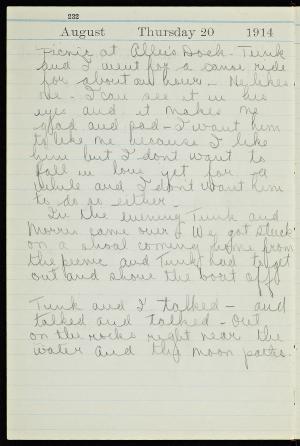 232
August Thursday 20 1914
Picnic at Allie's Dock. Tunk
and I went for a canoe ride
for about an hour - He likes
me - I can see it in his
eyes and it makes me
glad and sad - I want him
to like me because I like
him but I dont want to
fall in love yet for a
while and I dont want him
to do so either -
In the evening Tunk and
Morris came over. We got stuck
on a shoal coming home from
the picnic and Tunk had to get
out and shove the boat off
Tunk and I talked - and
talked and talked - Out
on the rocks right near the
water and the moon path.